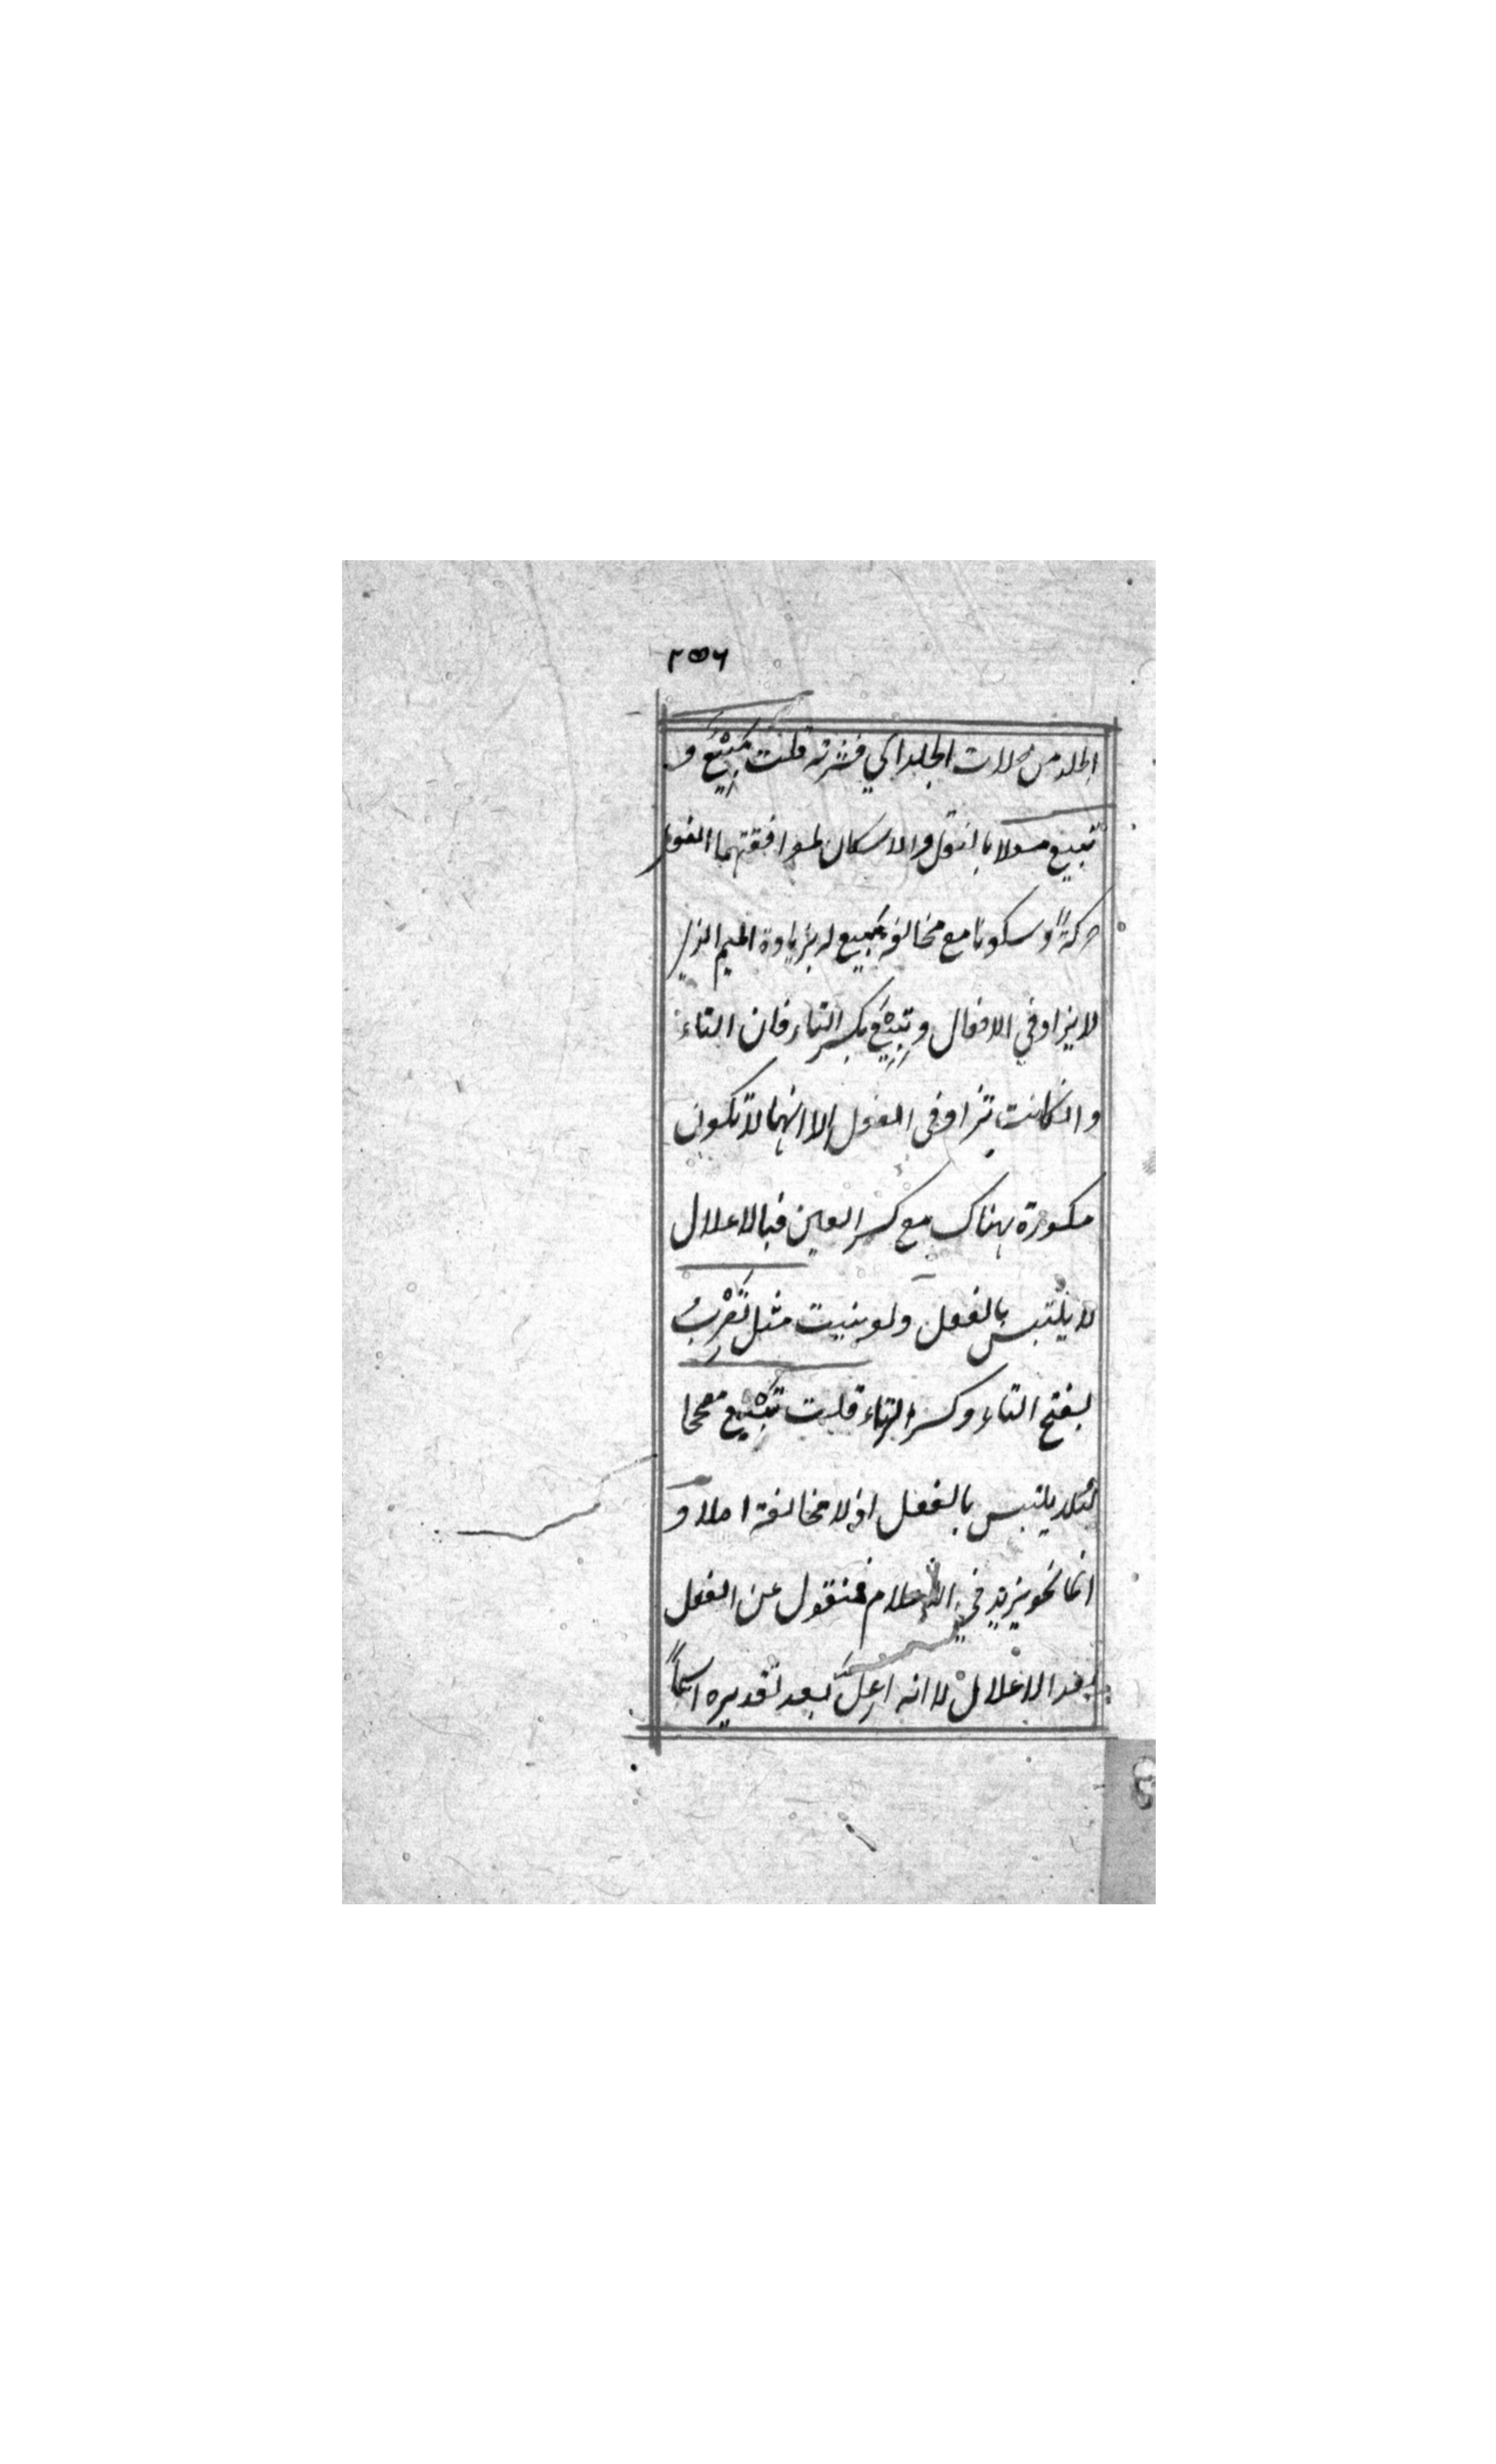 ٢٥٦
الجلد من حلات الجلد اي قشرته قلت مَبْيِعٌ و
تبيع معلا بالنقل والاسكان لموافقتهما الفعل
حركةً وسكونا مع مخالفة مبيع له بزيادة الميم التي
لا يزاد في الافعال و تِبِيْع بكسر التاء فان التاء
وانكانت تزاد في الفعل الا انها لا تكون
مكسورة هناك مع كسر العين فبالاعلال
لا يلتبس بالفعل ولو بنيت مثل تَضْرِبُ
بفتح التاء وكسر الراء قلت تَبْيِع مصححا
لئلا يلتبس بالفعل اذ لا مخالفة اصلا و
انما نحو يزيد في الاعلام فمنقول عن الفعل
بعد الاعلال لا انه اعلّ بعد تقديره اسماً